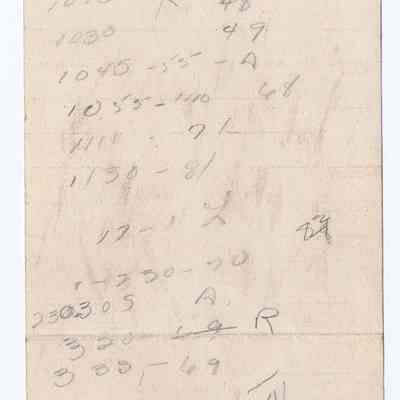 R 48
1030 49
1045-55-A
1055-1110 68
1111 - 71
1130-81
17-1 L
1-230-70
230305 A
320 19 R
335,-69